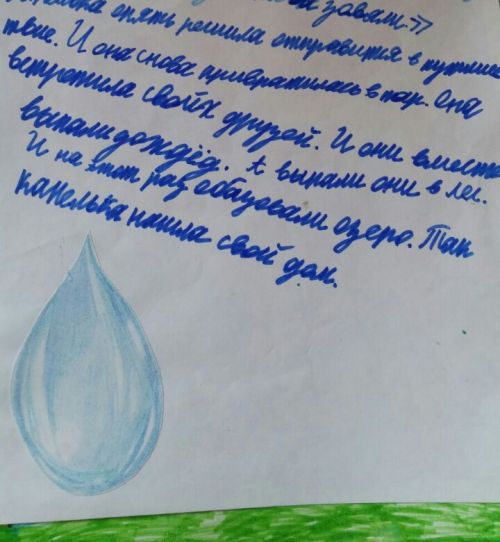 зовут.»
опять решила отправится в путешес
твие. И она снова превратилась в пар. Она
встретила своих друзей. И они вместе
выпали дождём. И выпали они в лес.
И на этот раз образовали озеро. Так
капелька нашла свой дом.